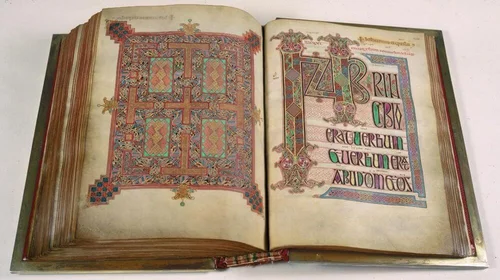 INPRIN
CIPIO
ERAT UERBUM
ET UERBUM ERAT
APUD DM ET DS